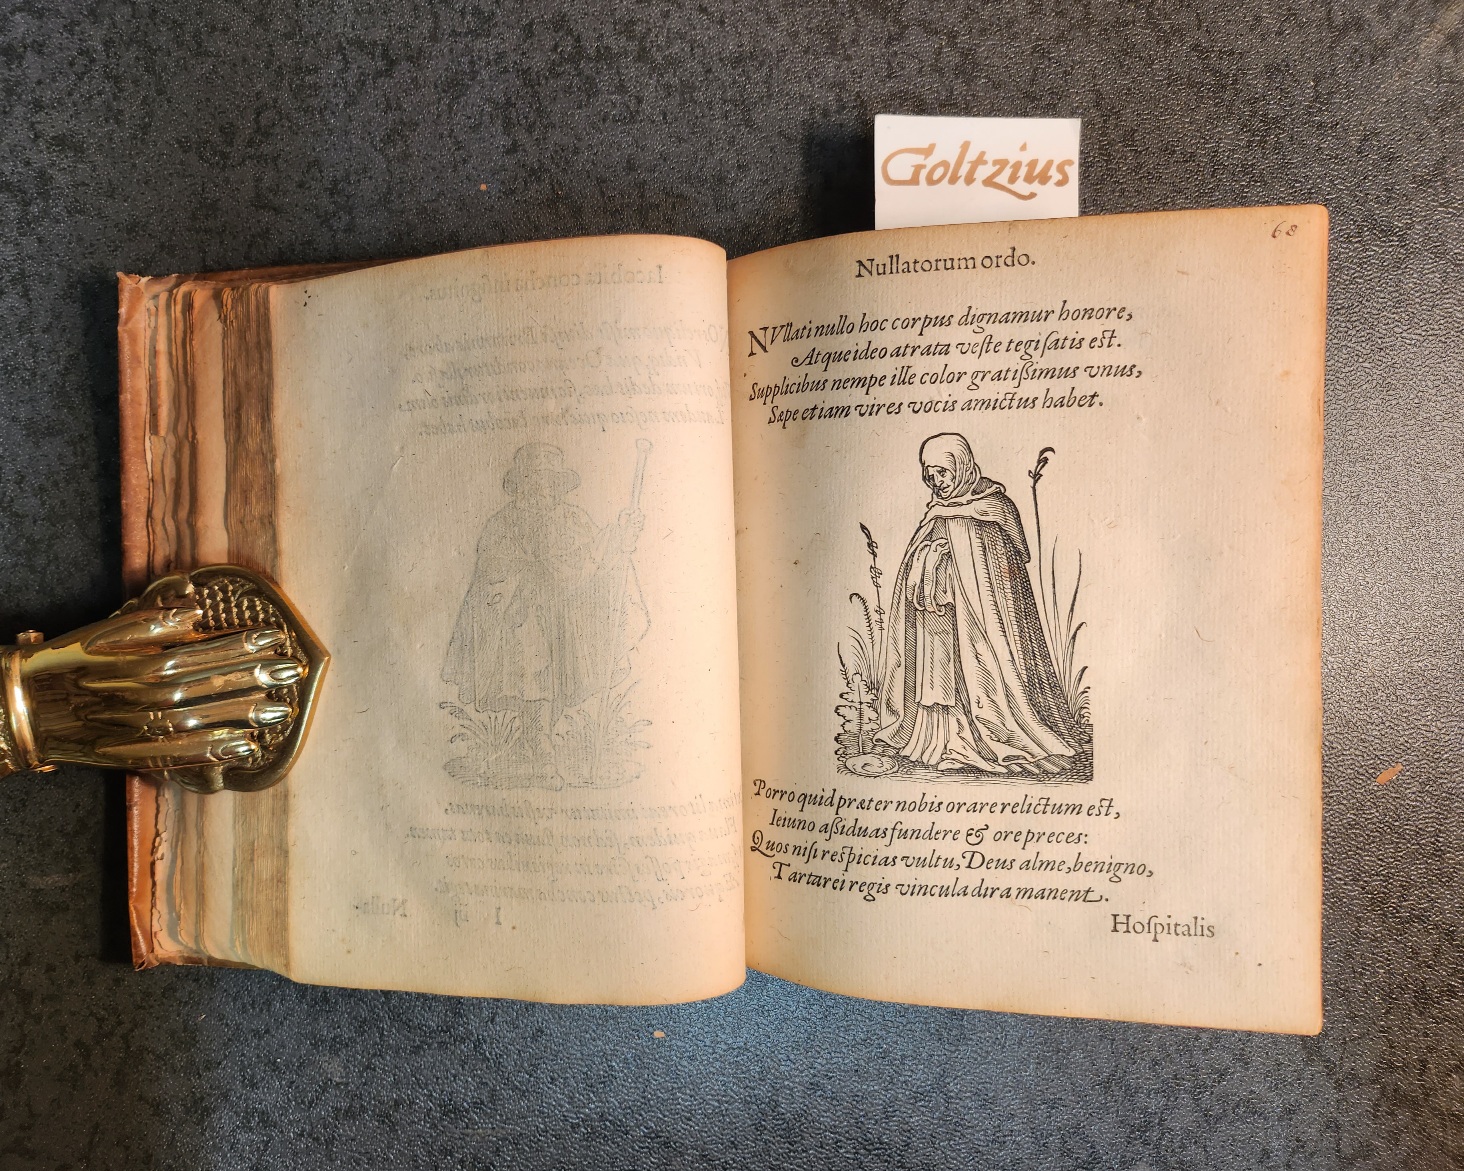 Goltzius
68
Nullatorum ordo.
NVllati nullo hoc corpus dignamur honore,
Atque ideo atrata veste tegi satis est.
Supplicibus nempe ille color gratißimus vnus,
Sæpe etiam vires vocis amictus habet.
Porro quid præter nobis orare relictum est,
Ieiuno aßiduas fundere & ore preces:
Quos nisi respicias vultu, Deus alme, benigno,
Tartarei regis vincula dira manent.
Hoſpitalis